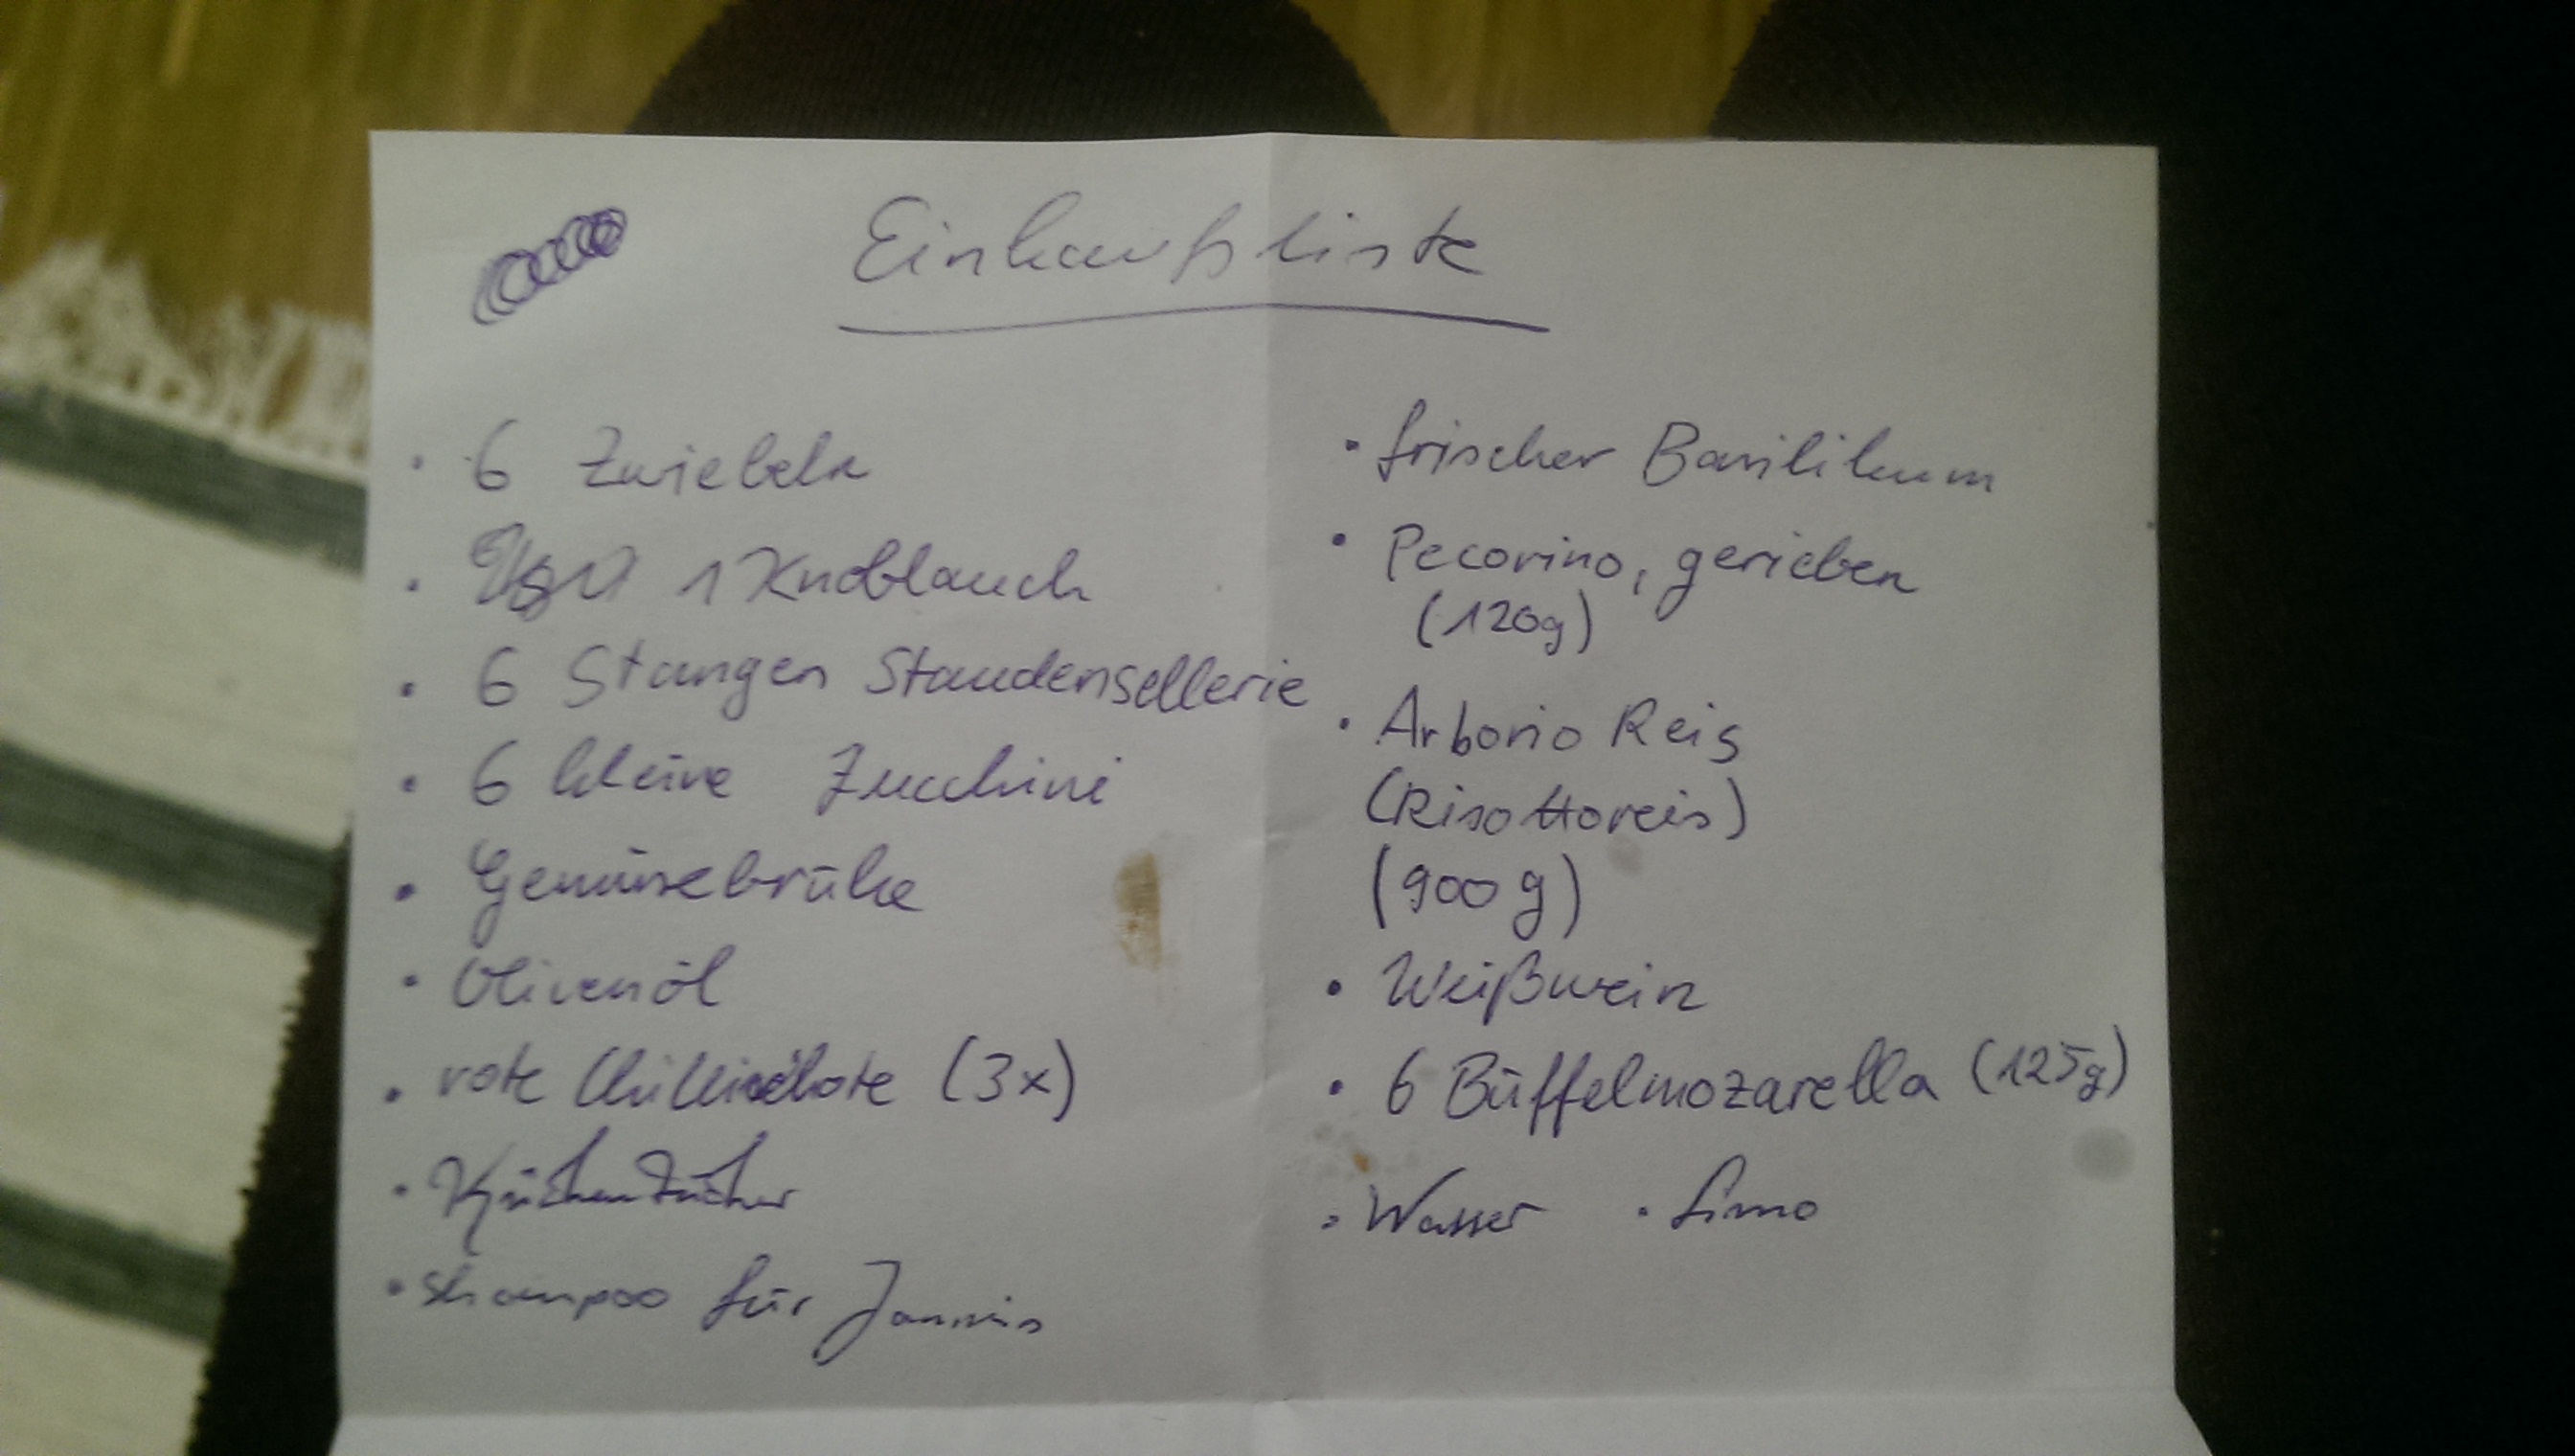 Einkaufsliste
· 6 Zwiebeln
· 1 Knoblauch
· 6 Stangen Staudensellerie
· 6 kleine Zucchini
· Gemüsebrühe
· Olivenöl
· rote Chillischote (3x)
· Küchentücher
· Shampoo für Jannis
· frischer Basilikum
· Pecorino, gerieben
(120g)
· Arborio Reis
(Risottoreis)
(900 g)
· Weißwein
· 6 Büffelmozarella (125g)
· Wasser · Limo